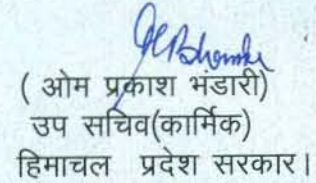 ( ओम प्रकाश भंडारी)
उप सचिव(कार्मिक)
हिमाचल प्रदेश सरकार।